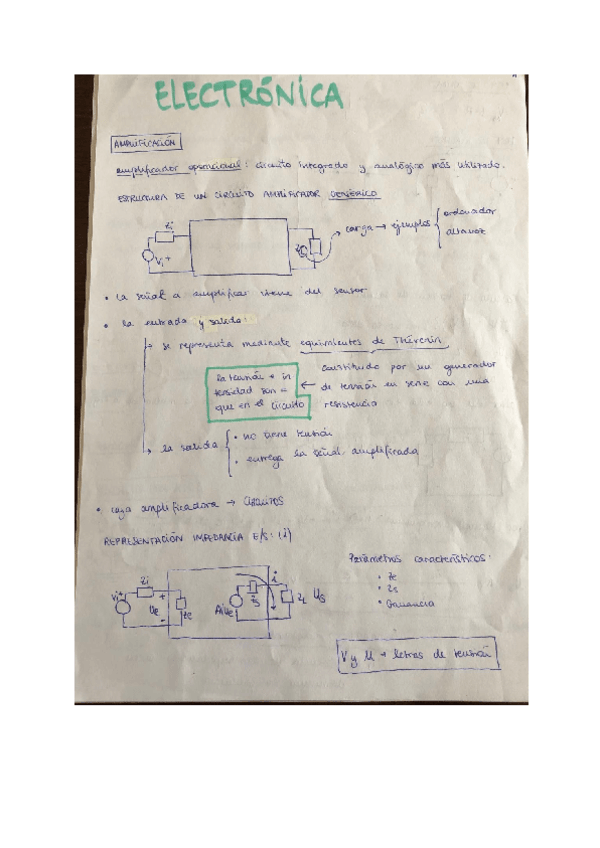 ELECTRÓNICA
AMPLIFICACIÓN
amplificador operacional: circuito integrado y analógico más utilizado.
ESTRUCTURA DE UN CIRCUITO AMPLIFICADOR GENÉRICO
Zi
Vi +
ZL
carga → ejemplos
ordenador
altavoz
• la señal a amplificar viene del sensor
• la entrada y salida:
se representa mediante equivalentes de Thévenin
la tensión + in
tensidad son =
que en el circuito
constituido por un generador
de tensión en serie con una
resistencia
la salida
• no tiene tensión
• entrega la señal amplificada
• caja amplificadora → CIRCUITOS
REPRESENTACIÓN IMPEDANCIA E/S: (Z)
Parámetros característicos:
• Ze
• Zs
• Ganancia
Vi +
Zi
+
Ue
-
Ze
AUe
Zs
i
ZL
Us
V y U → letras de tensión